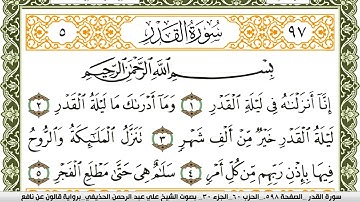 ٩٧ سُورَةُ القَدْرِ ٥
بِسْمِ اللَّهِ الرَّحْمَٰنِ الرَّحِيمِ
إِنَّا أَنزَلْنَٰهُ فِي لَيْلَةِ الْقَدْرِ ١ وَمَا أَدْرَىٰكَ مَا لَيْلَةُ الْقَدْرِ ٢
لَيْلَةُ الْقَدْرِ خَيْرٌ مِّنْ أَلْفِ شَهْرٍ ٣ تَنَزَّلُ الْمَلَٰٓئِكَةُ وَالرُّوحُ
فِيهَا بِإِذْنِ رَبِّهِم مِّن كُلِّ أَمْرٍ ٤ سَلَٰمٌ هِيَ حَتَّىٰ مَطْلَعِ الْفَجْرِ ٥
سورة القدر _ الصفحة ٥٩٨_ الحزب ٦٠_ الجزء ٣٠ _ بصوت الشيخ علي عبد الرحمن الحذيفي_ برواية قالون عن نافع